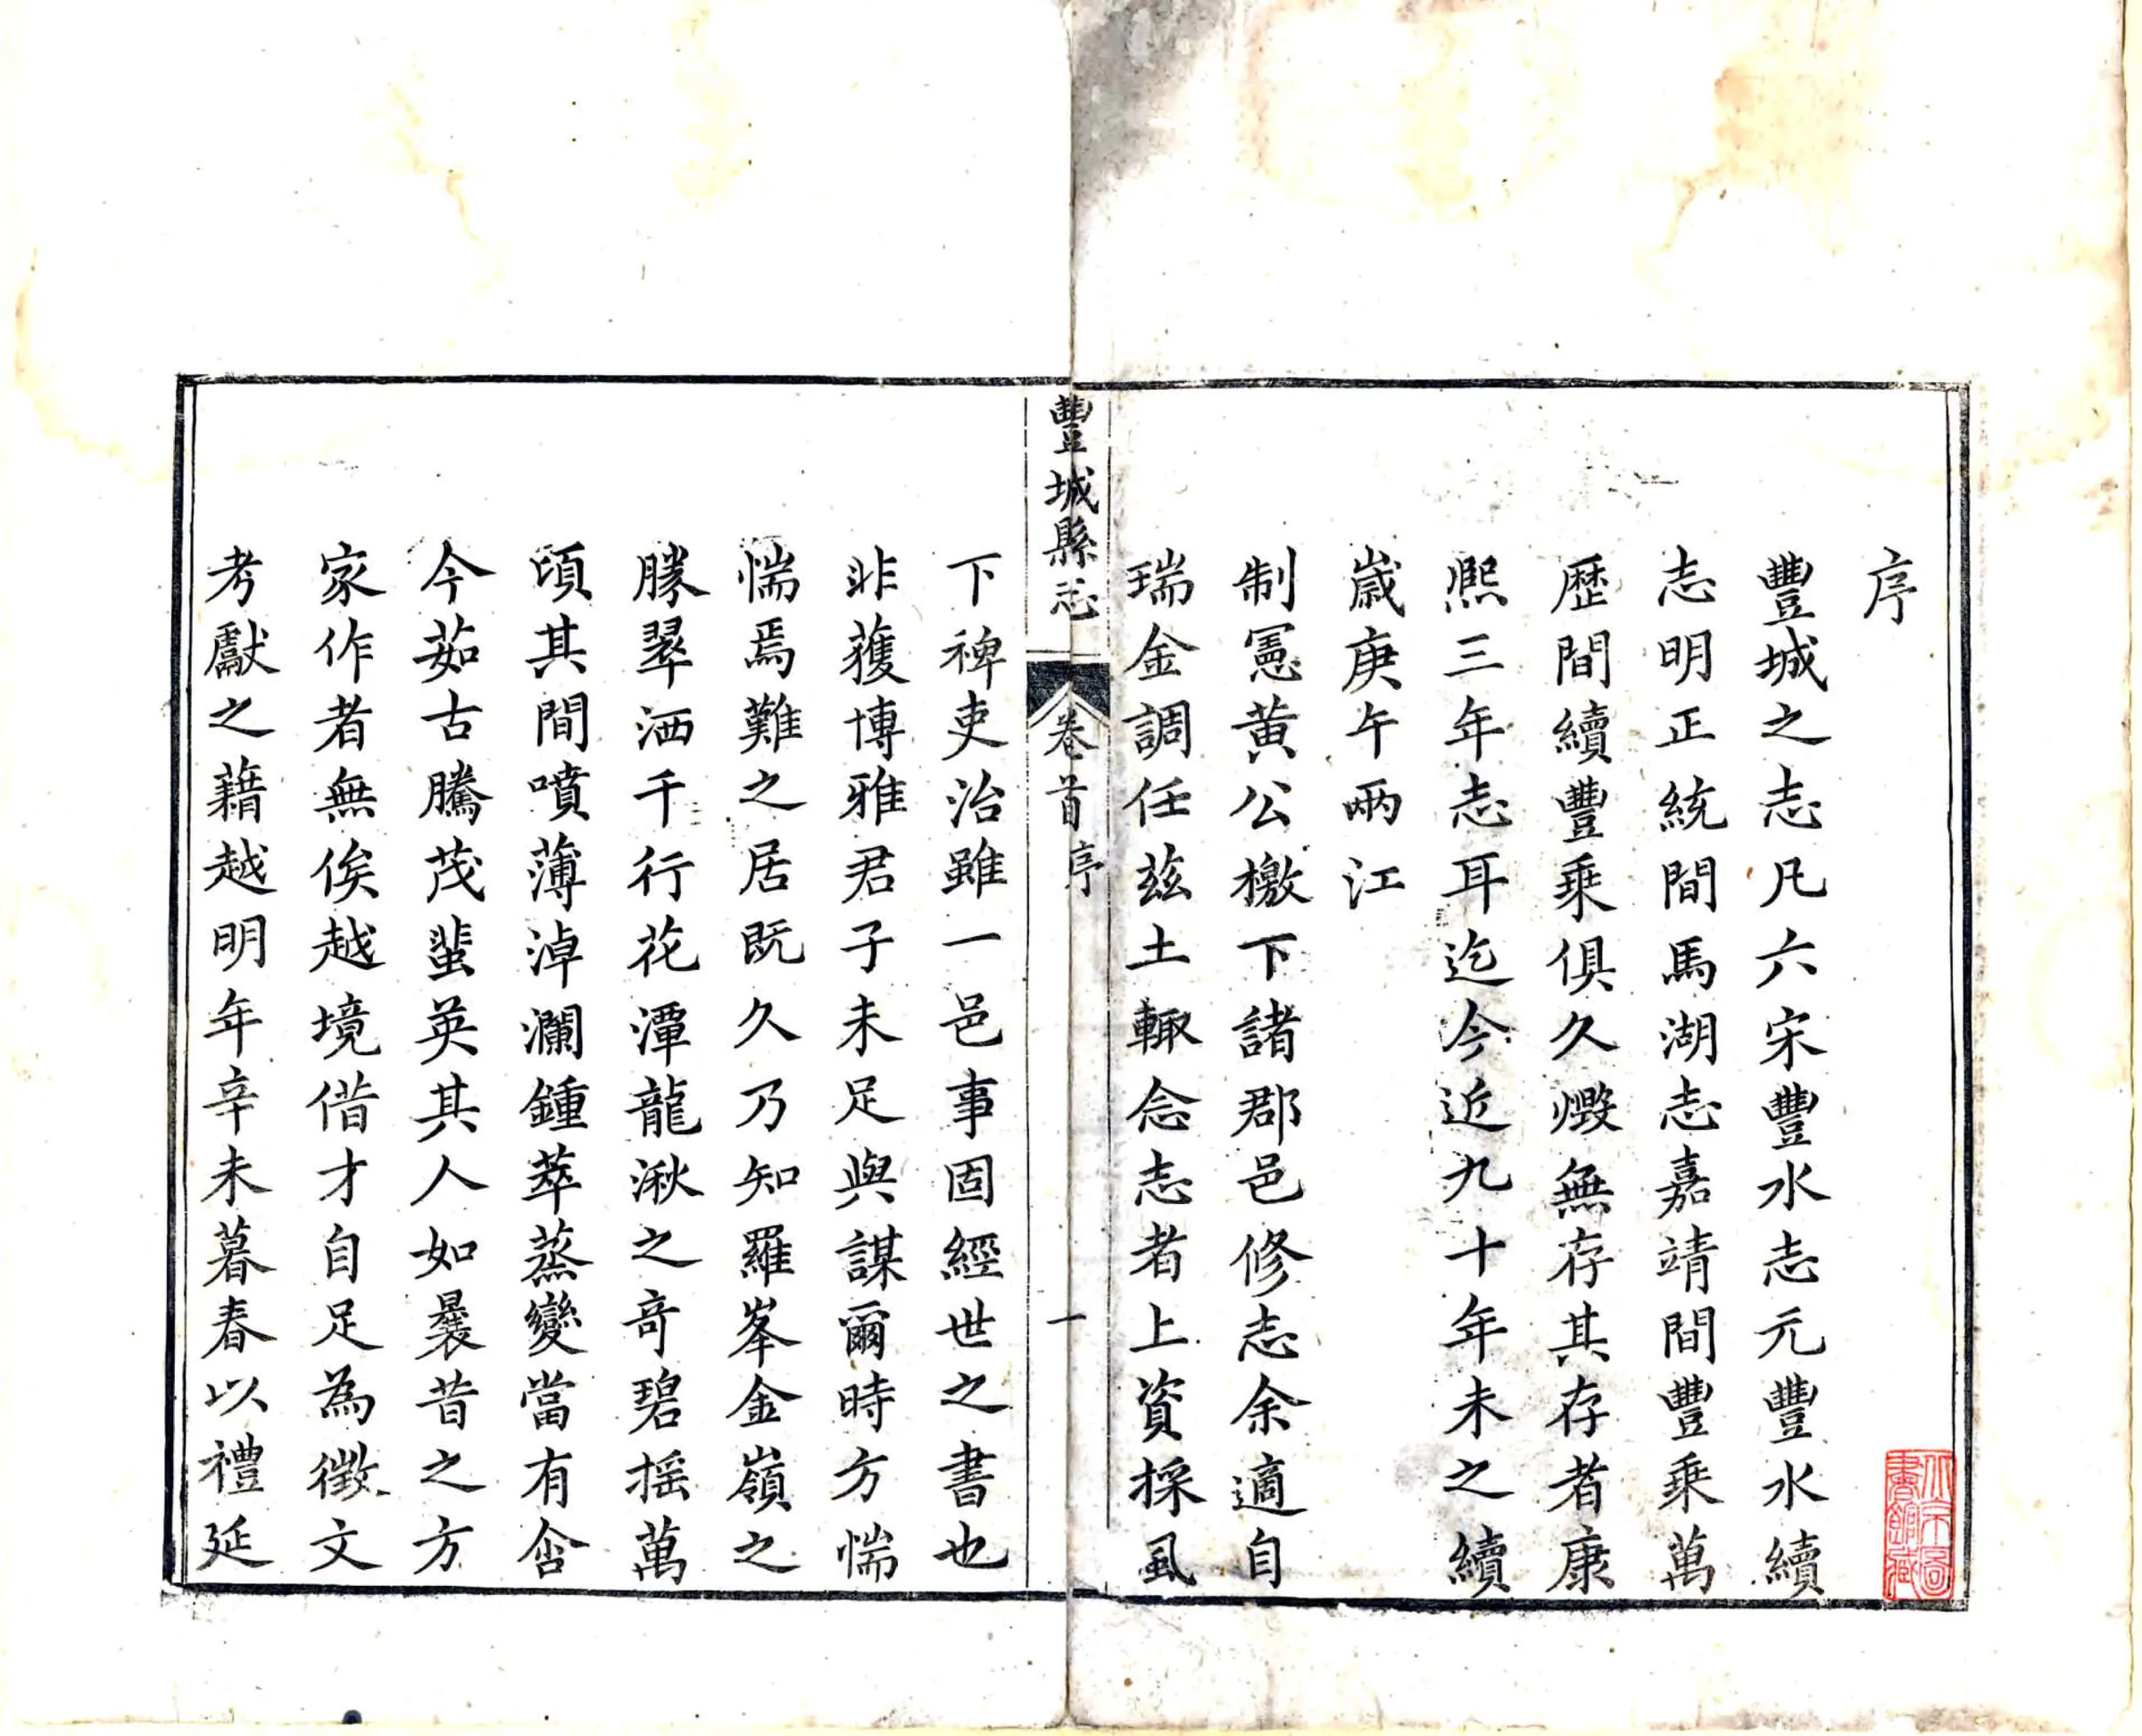 序
豐城之志凡六宋豐水志元豐水續
志明正統間馬湖志嘉靖間豐乗萬
歷間續豐乗俱久燬無存其存者康
熙三年志耳迄今近九十年未之續
歲庚午兩江
制憲黄公檄下諸郡邑修志余適自
瑞金調任兹土輙念志者上資採風
豐城縣志 卷首 序 一
下裨吏治雖一邑事固經世之書也
非獲博雅君子未足與謀爾時方惴
惴焉難之居既久乃知羅峯金嶺之
勝翠洒千行花潭龍湫之竒碧摇萬
頃其間噴薄淖瀾鍾萃蒸變當有含
今茹古騰茂蜚英其人如曩昔之方
家作者無俟越境借才自足為徵文
考獻之藉越明年辛未暮春以禮延